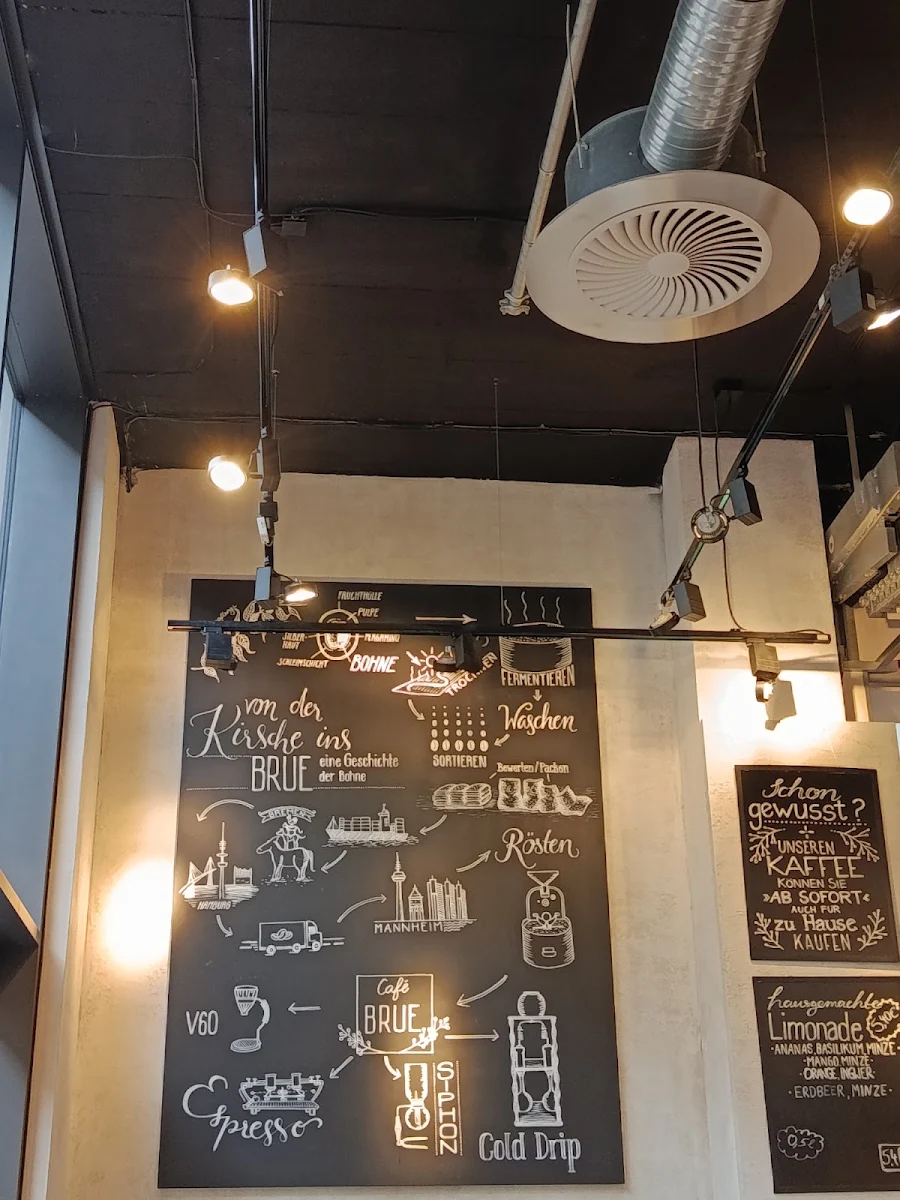 FRUCHTHÜLLE
PULPE
SILBER-
HAUT
SCHLEIMSCHICHT
BOHNE
FERMENTIEREN
Waschen
SORTIEREN
von der
Kirsche ins
BRUE
eine Geschichte
der Bohne
Bewerten/Packen
BREMEN
Rösten
HAMBURG
MANNHEIM
Café
BRUE
V60
Espresso
SIPHON
Cold Drip
Schon
gewusst?
UNSEREN
KAFFEE
KÖNNEN SIE
»AB SOFORT«
AUCH FÜR
zu Hause
KAUFEN
hausgemachte
Limonade
5,40€
·ANANAS, BASILIKUM, MINZE·
·MANGO, MINZE·
·ORANGE, INGWER·
·ERDBEER, MINZE·
0,5L